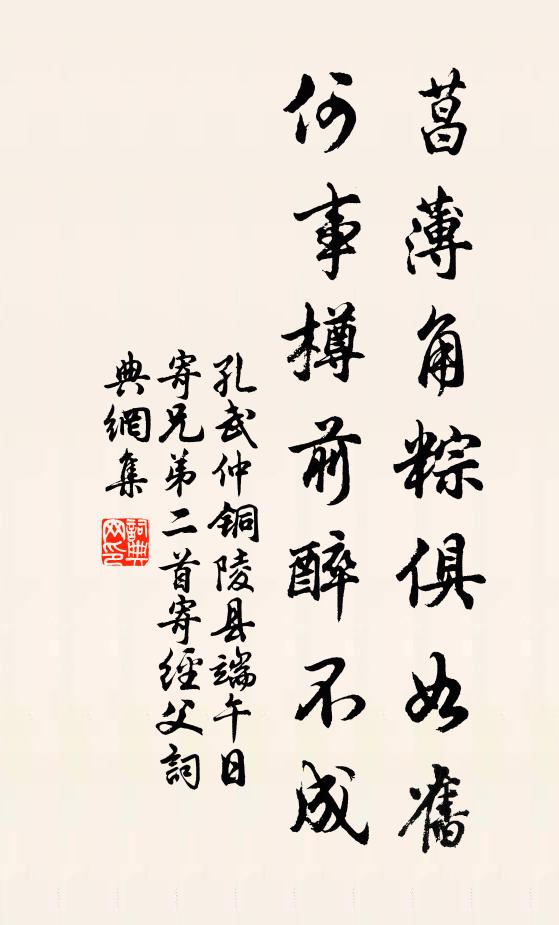 菖薄角粽俱如舊
何事樽前醉不成
孔武仲銅陵县端午日
寄兄弟二首寄經父詞
典網集
詞典
网印